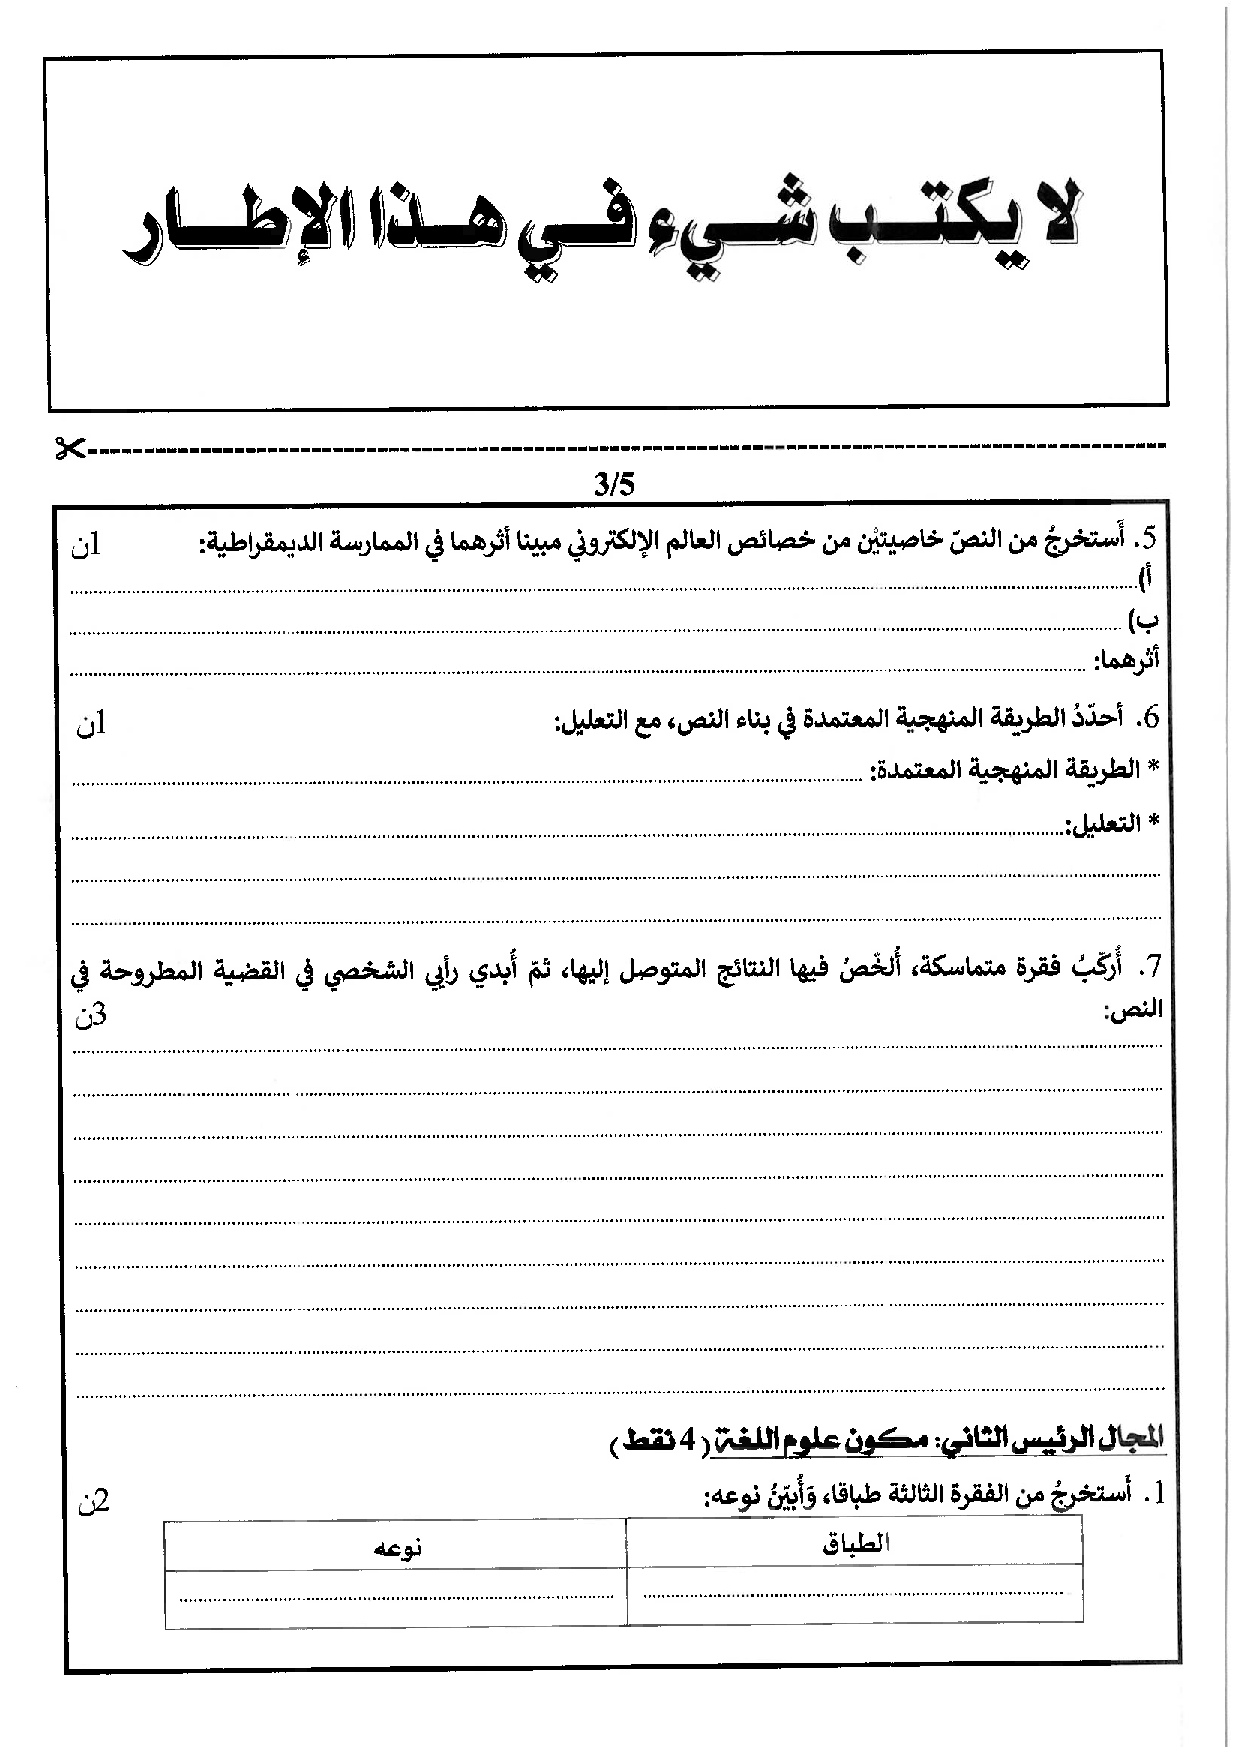 لا يكتب شيء في هذا الإطار
3/5
5. أَستخرجُ من النصّ خاصيتيْن من خصائص العالم الإلكتروني مبينا أثرهما في الممارسة الديمقراطية: 1ن
أ)
ب)
أثرهما:
6. أحدّدُ الطريقة المنهجية المعتمدة في بناء النص، مع التعليل: 1ن
* الطريقة المنهجية المعتمدة:
* التعليل:
7. أُركّبُ فقرة متماسكة، أُلخّصُ فيها النتائج المتوصل إليها، ثمّ أُبدي رأيي الشخصي في القضية المطروحة في
النص: 3ن
المجال الرئيس الثاني: مكون علوم اللغة (4 نقط)
1. أَستخرجُ من الفقرة الثالثة طباقا، وَأُبيّنُ نوعه: 2ن
الطباق نوعه